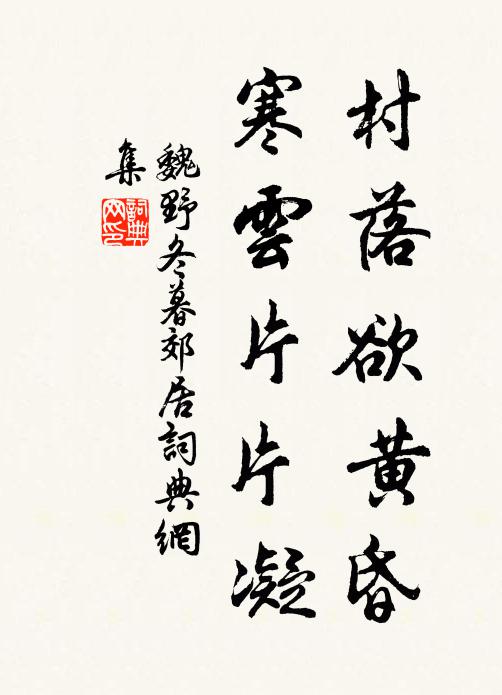 村落欲黄昏
寒雲片片凝
魏野冬暮郊居詞典網
集
詞典網印